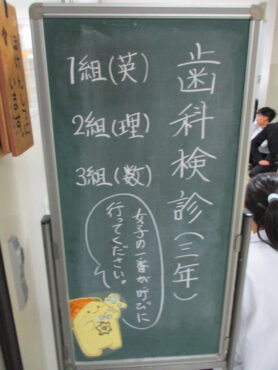 歯科検診(三年)
1組(英)
2組(理)
3組(数)
女子の一番が呼びに
行ってください。